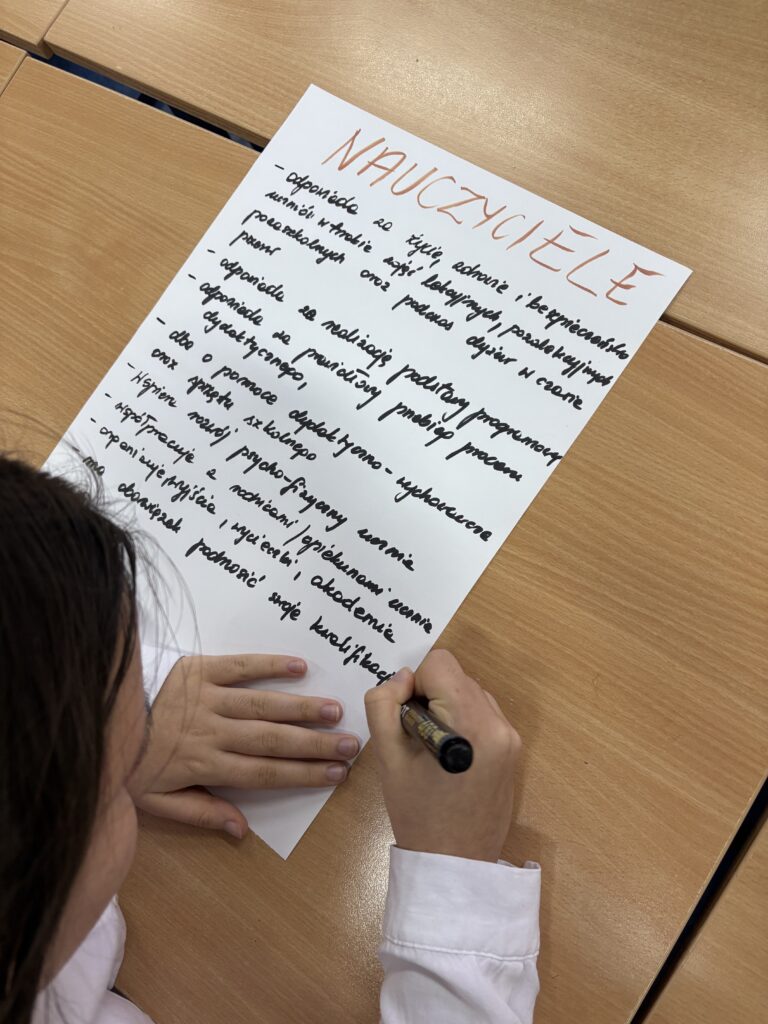 NAUCZYCIELE
- odpowiada za życie, zdrowie i bezpieczeństwo
uczniów w trakcie zajęć lekcyjnych, pozalekcyjnych
pozaszkolnych oraz podczas dyżuru w czasie
przerw
- odpowiada za realizację podstawy programowej
- odpowiada za prawidłowy przebieg procesu
dydaktycznego,
- dba o pomoce dydaktyczno - wychowawcze
oraz sprzętu szkolnego
- wspiera rozwój psycho-fizyczny ucznia
- współpracuje z rodzicami/opiekunami ucznia
- organizuje wyjścia, wycieczki, akademie
- ma obowiązek podnosić swoje kwalifikacj